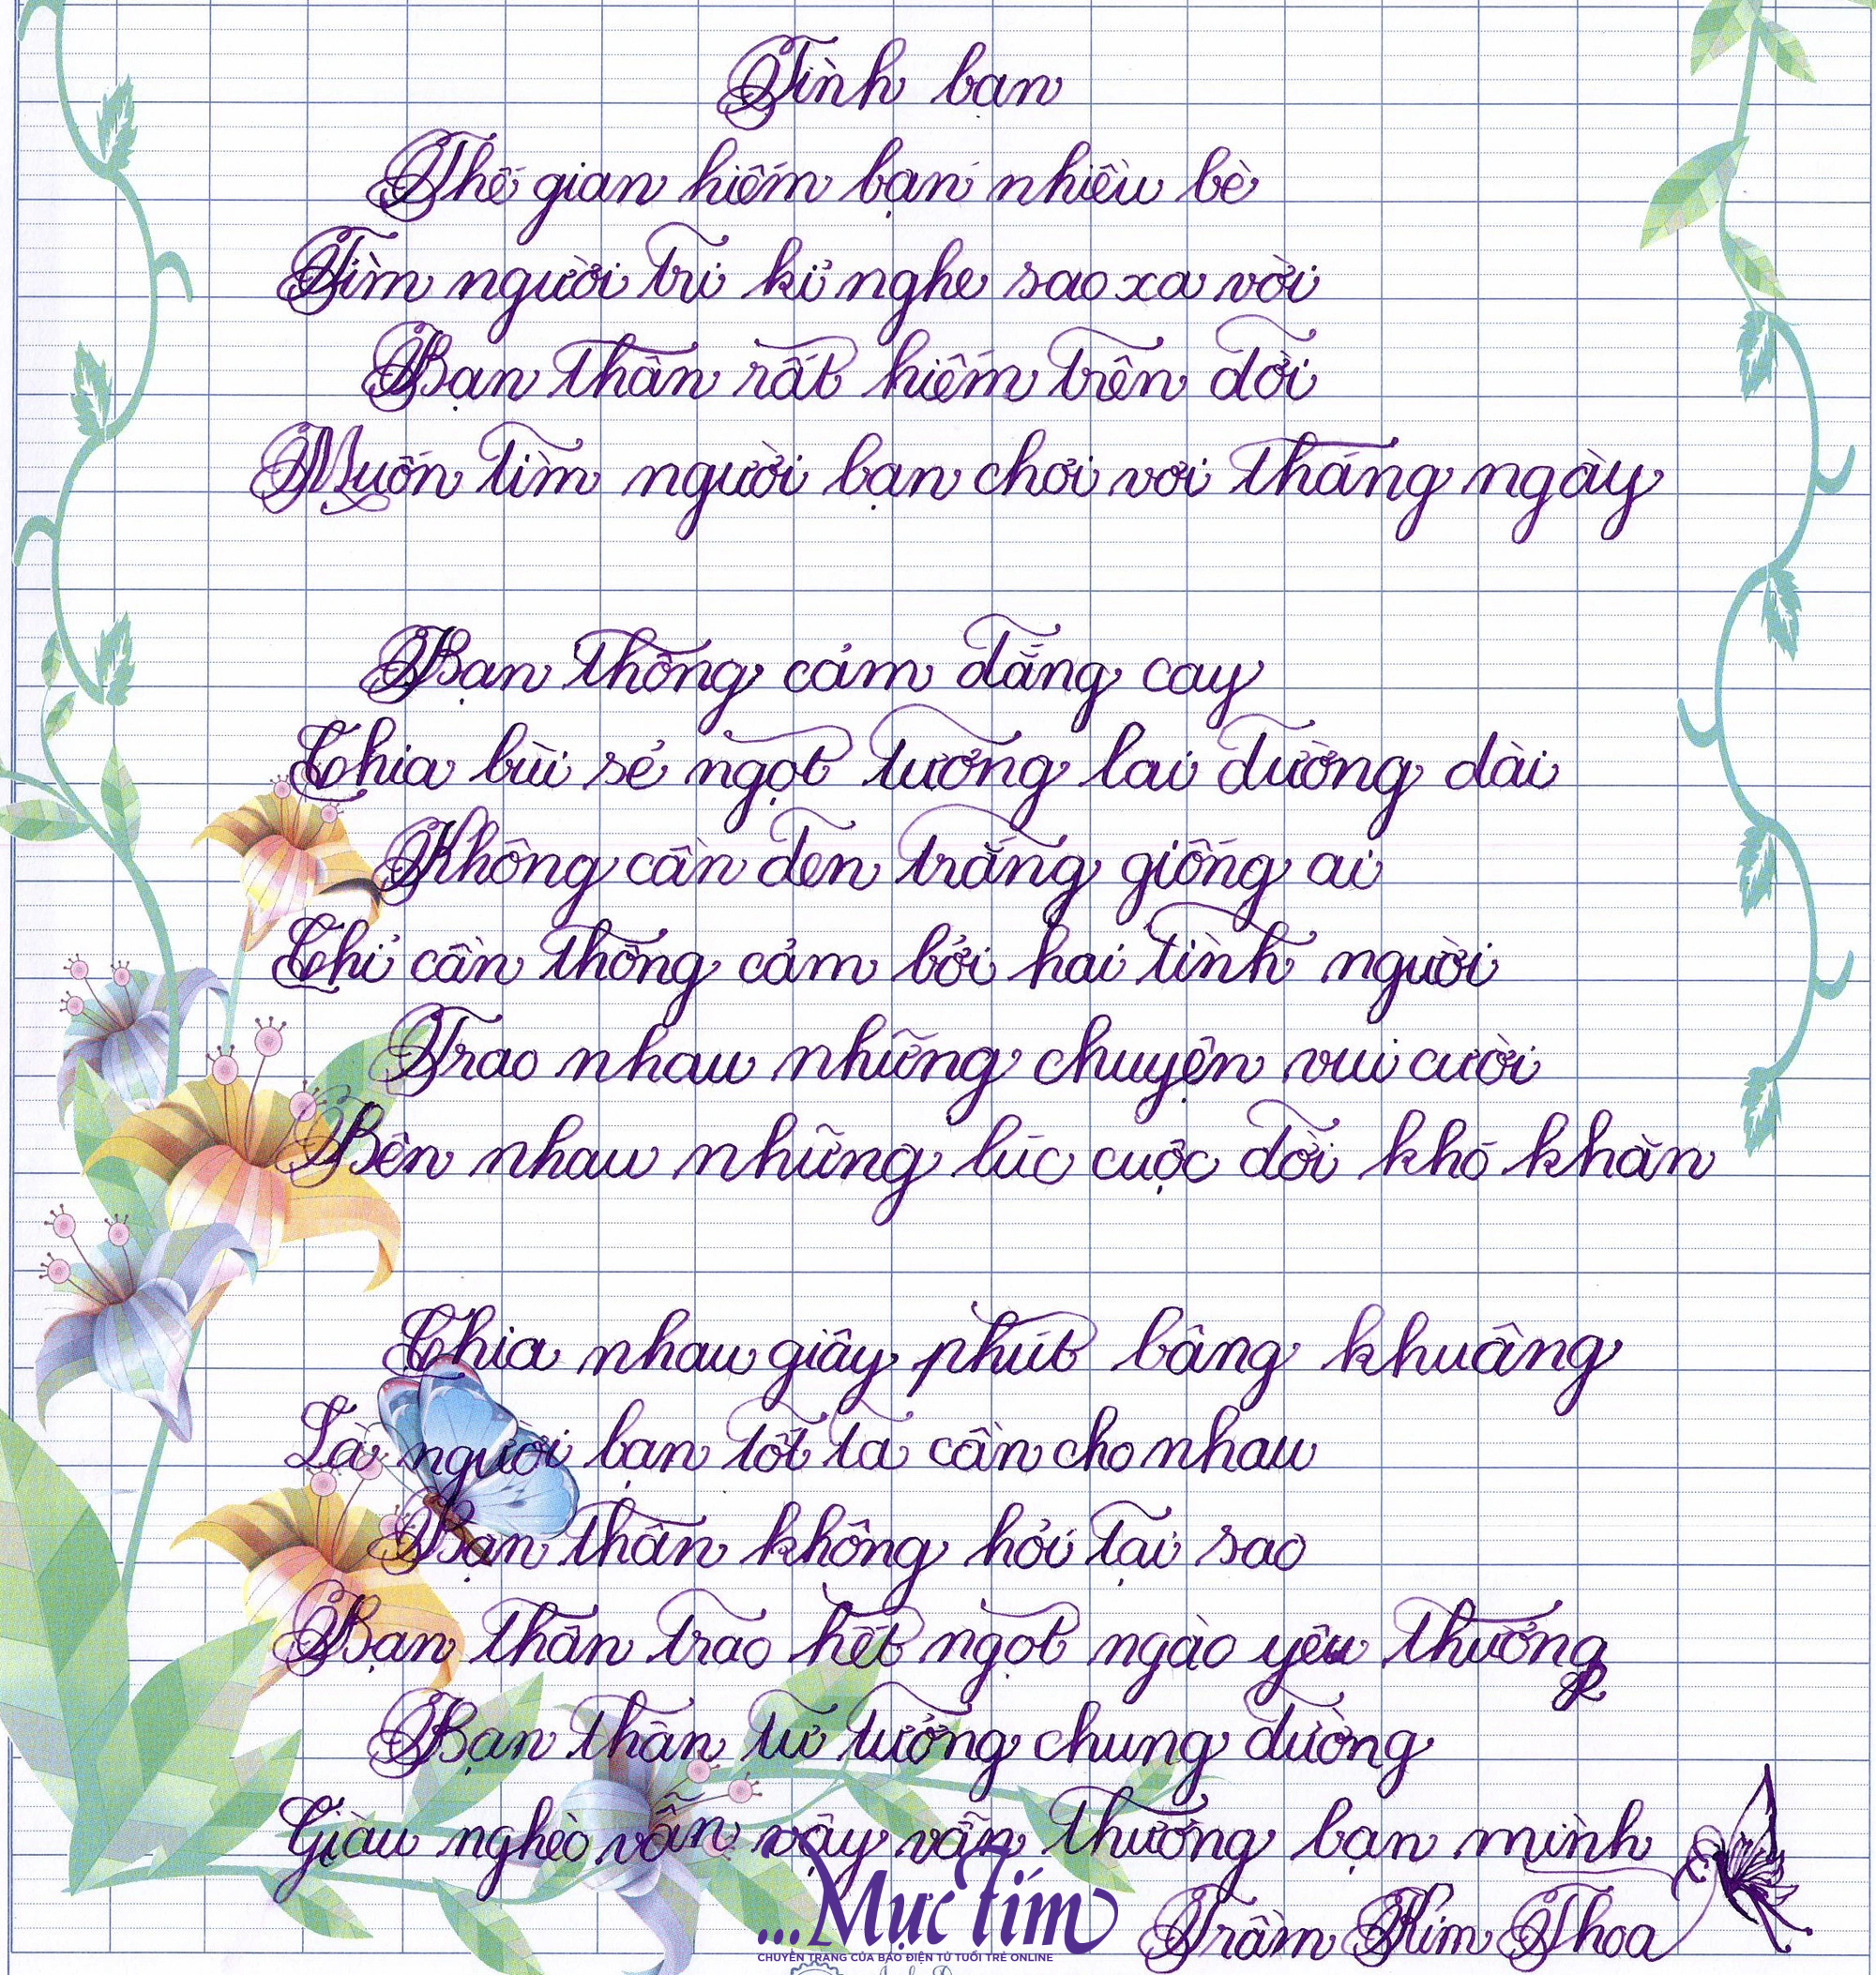 Tình bạn
Thế gian hiếm bạn nhiều bè
Tìm người tri kỉ nghe sao xa vời
Bạn thân rất hiếm trên đời
Muốn tìm người bạn chơi vơi tháng ngày
Bạn thông cảm đắng cay
Chia bùi sẻ ngọt tương lai đường dài
Không cần đen trắng giống ai
Chỉ cần thông cảm bởi hai tình người
Trao nhau những chuyện vui cười
Bên nhau những lúc cuộc đời khó khăn
Chia nhau giây phút bâng khuâng
Là người bạn tốt ta cần cho nhau
Bạn thân không hỏi tại sao
Bạn thân trao hết ngọt ngào yêu thương
Bạn thân tư tưởng chung đường
Giàu nghèo vẫn vậy vẫn thương bạn mình
Trầm Kim Thoa
...Mực Tím
CHUYÊN TRANG CỦA BÁO ĐIỆN TỬ TUỔI TRẺ ONLINE